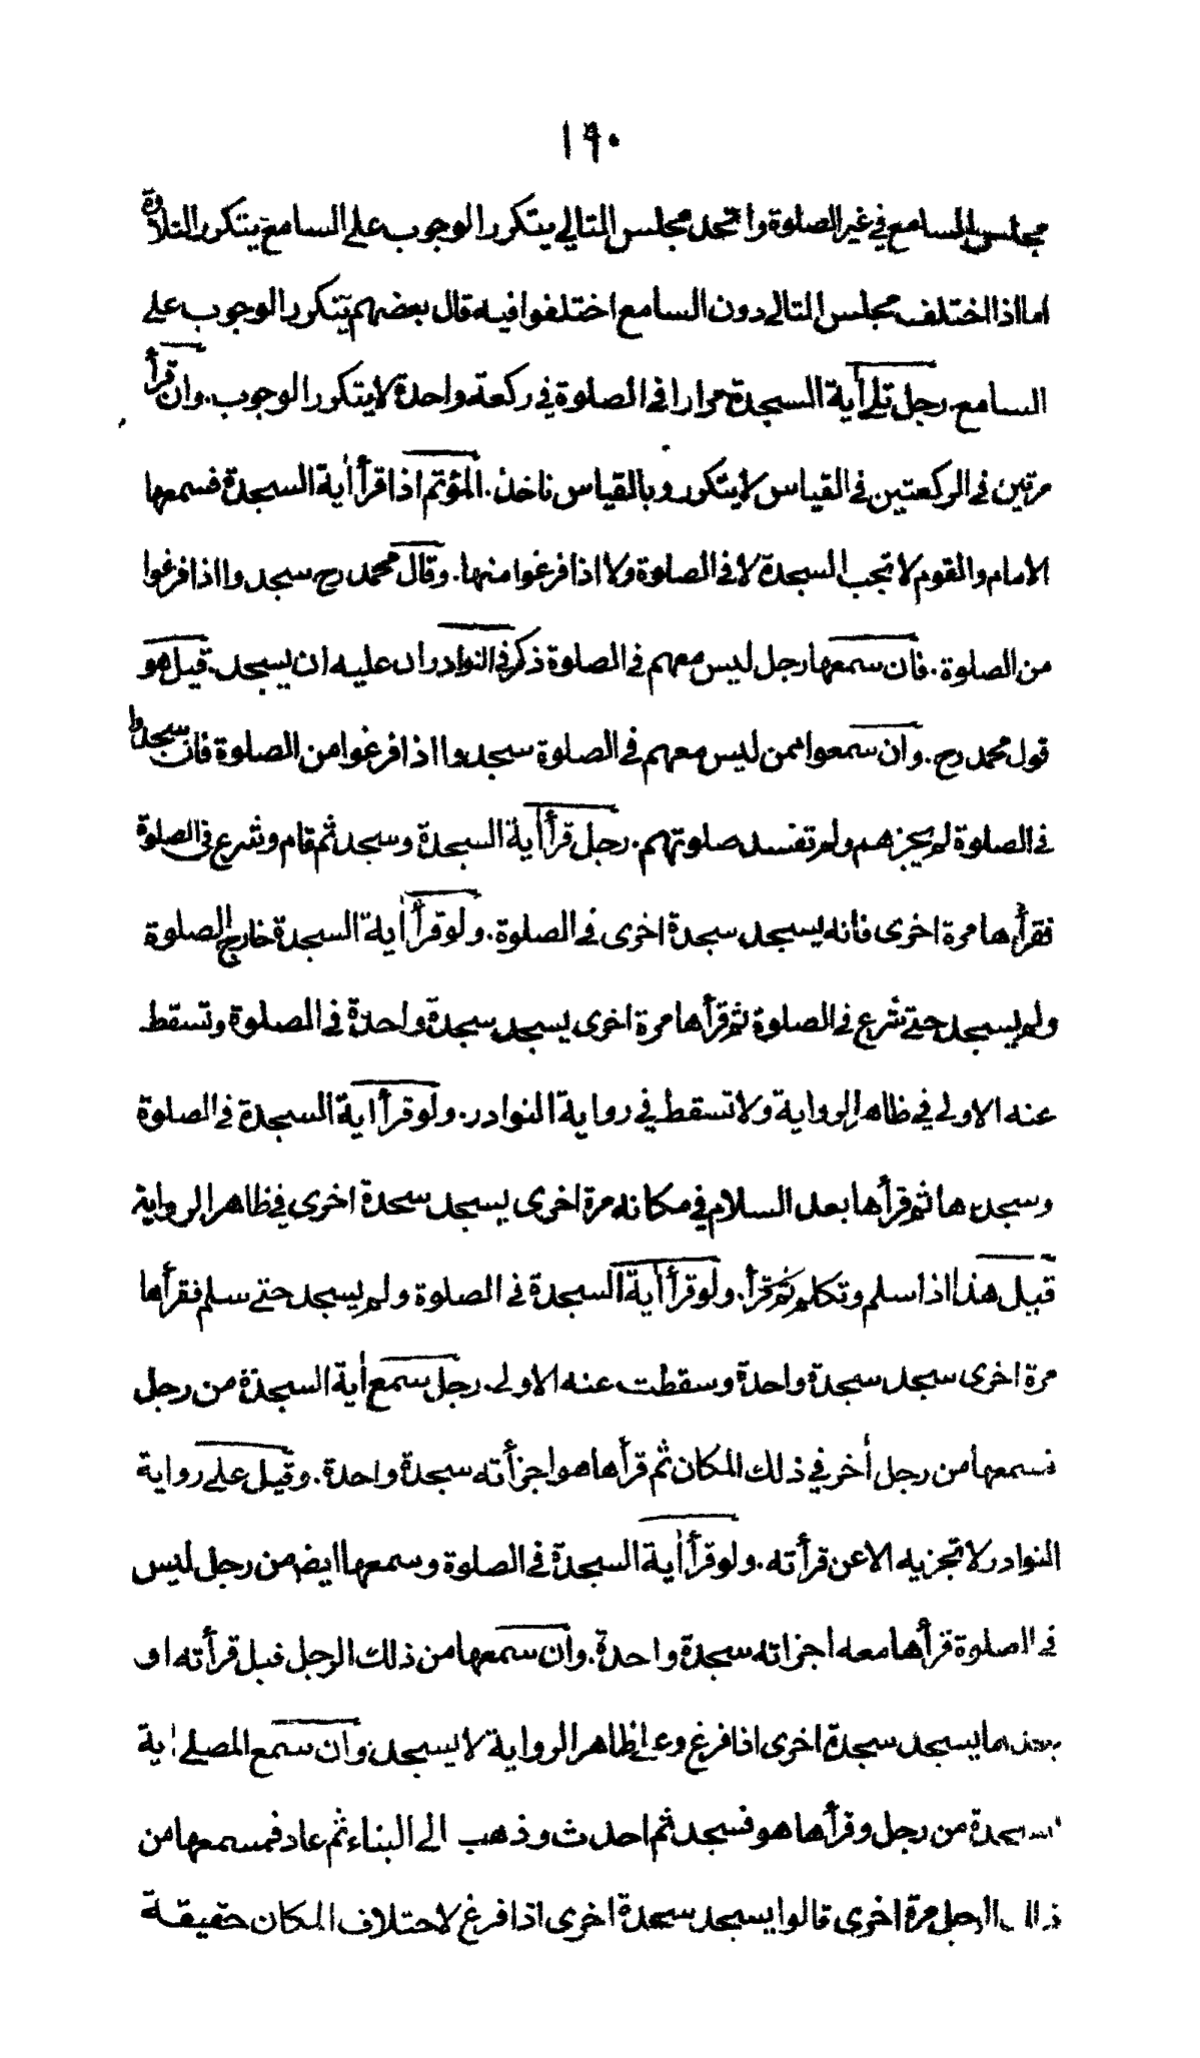 ١٩٠
مجلس السامع في غير الصلوة واتحد مجلس التالي يتكرر الوجوب على السامع بتكرر التلاوة
اما اذا اختلف مجلس التالي دون السامع اختلفوا فيه قال بعضهم يتكرر الوجوب على
السامع. رجل تلى أية السجدة مرارا في الصلوة في ركعة واحدة لا يتكرر الوجوب. وان قرأ
مرتين في الركعتين في القياس لا يتكرر و بالقياس ناخذ. المؤتم اذا قرأ أية السجدة فسمعها
الامام والقوم لا تجب السجدة لا في الصلوة ولا اذا فرغوا منها. وقال محمد رح سجدوا اذا فرغوا
من الصلوة. فان سمعها رجل ليس معهم في الصلوة ذكر في النوادر ان عليه ان يسجد. قيل هو
قول محمد رح. وان سمعوا ممن ليس معهم في الصلوة سجدوا اذا فرغوا من الصلوة فان سجدوا
في الصلوة لم يجزهم ولم تفسد صلوتهم. رجل قرأ أية السجدة وسجد ثم قام وشرع في الصلوة
فقرأها مرة اخرى فانه يسجد سجدة اخرى في الصلوة. ولو قرأ أية السجدة خارج الصلوة
ولم يسجد حتى شرع في الصلوة ثم قرأها مرة اخرى يسجد سجدة واحدة في الصلوة وتسقط
عنه الاولى في ظاهر الرواية ولا تسقط في رواية النوادر. ولو قرأ اية السجدة في الصلوة
وسجدها ثم قرأها بعد السلام في مكانه مرة اخرى يسجد سجدة اخرى في ظاهر الرواية
قيل هذا اذا سلم وتكلم ثم قرأ. ولو قرأ أية السجدة في الصلوة ولم يسجد حتى سلم فقرأها
مرة اخرى سجد سجدة واحدة وسقطت عنه الاولى. رجل سمع أية السجدة من رجل
فسمعها من رجل أخر في ذلك المكان ثم قرأها هو اجزأته سجدة واحدة. وقيل على رواية
النوادر لا تجزيه الا عن قرأته. ولو قرأ أية السجدة في الصلوة وسمعها ايضا من رجل ليس
في الصلوة قرأها معه اجزاته سجدة واحدة. وان سمعها من ذلك الرجل قبل قرأته او
بعدها يسجد سجدة اخرى اذا فرغ وعلى ظاهر الرواية لا يسجد. وان سمع المصلي اية
السجدة من رجل وقرأها هو فسجد ثم احدث وذهب الى البناء ثم عاد فسمعها من
ذلك الرجل مرة اخرى قالوا يسجد سجدة اخرى اذا فرغ لاختلاف المكان حقيقة